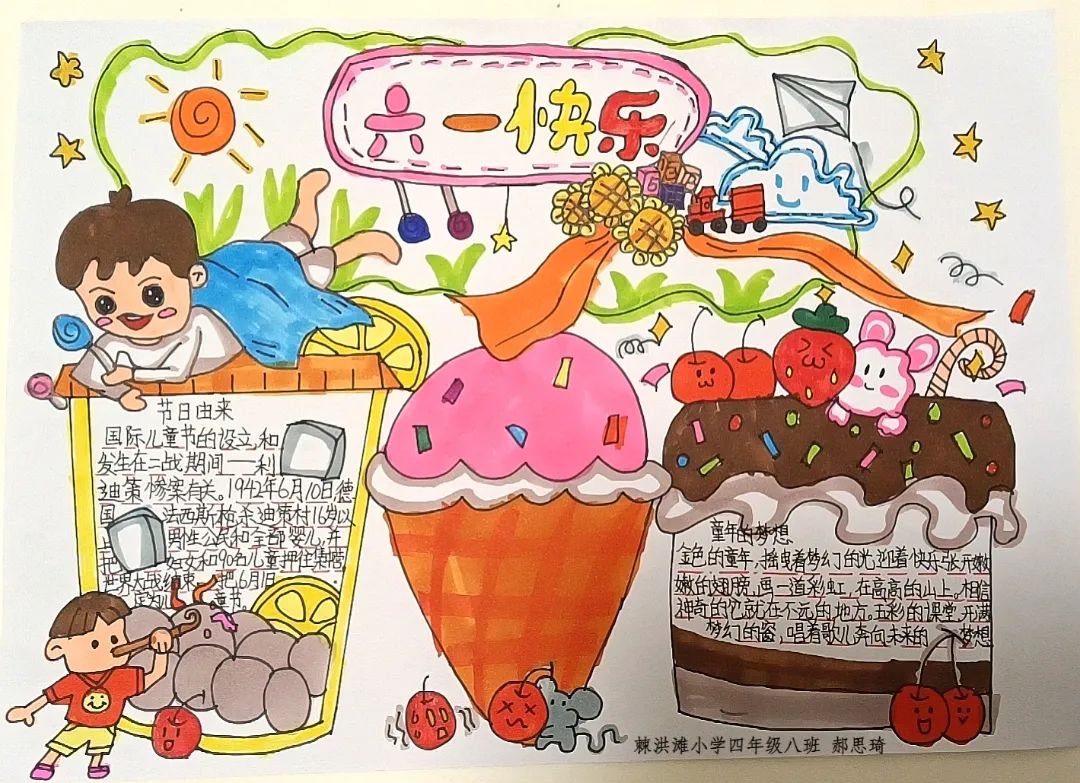 六一快乐
节日由来
国际儿童节的设立,和
发生在二战期间一—利
迪策惨案有关。1942年6月10日德
国 法西斯枪杀迪策村16岁以
上 男性公民和全部婴儿,并
把 妇女和90名儿童押住集营
世界大战结束 把6月1日
定为儿 童节。
童年的梦想
金色的童年,摇曳着梦幻的光迎着快乐张开嫩
嫩的翅膀,画一道彩虹,在高高的山上。相信
神奇的它就在不远的地方,五彩的课堂,开满
梦幻的窗,唱着歌儿奔向未来的 梦想
棘洪滩小学四年级八班 郝思琦